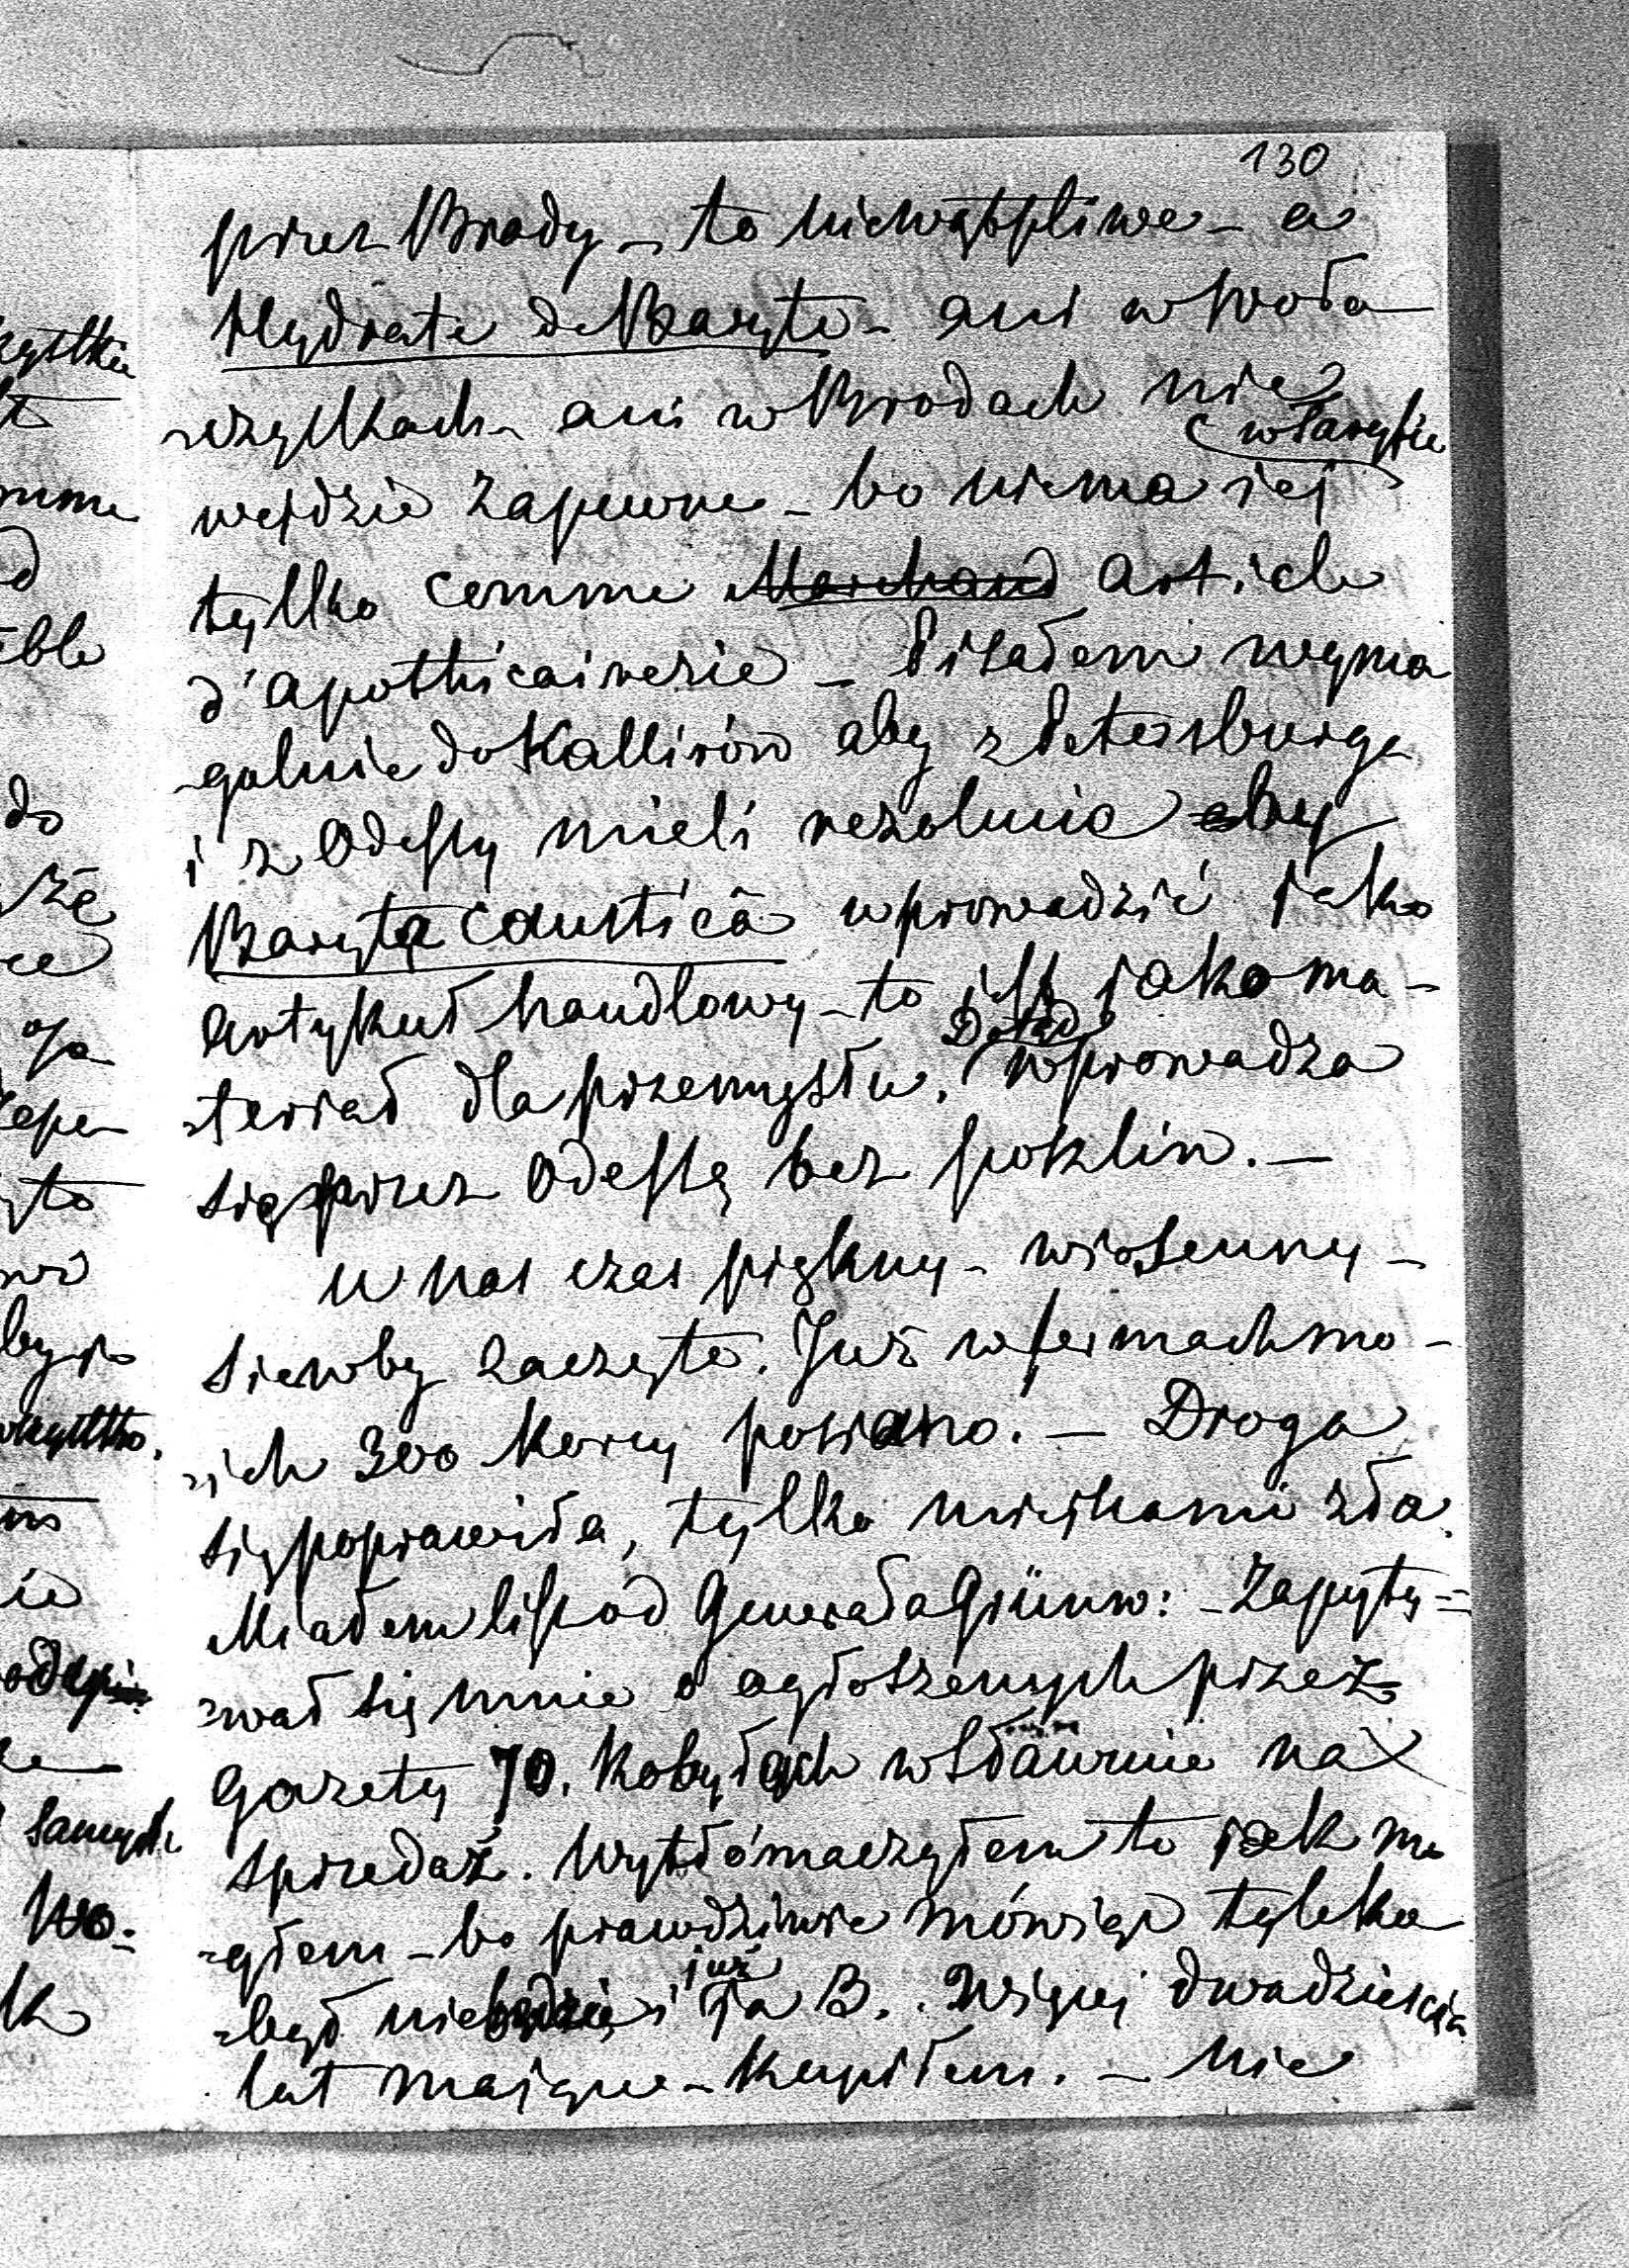 130
przez Brody – to niewątpliwe – a
Hydrate de Baryte – ani w Woło
czyskach – ani w Brodach nie
wejdzie zapewne – bo niema jej w taryfie
tylko comme Marchand article
d'apothicairerie – Pisałem wyma
galnie do Kallirów aby z Petersburga
i z Odessy mieli aby
Baryta caustica wprowadzić jako
Artykuł handlowy – to jest jako ma-
terjał dla przemysłu. Dotąd wprowadza
się przez Odessę bez poszlin. –
U nas czas piękny – wiosenny –
siewby zaczęte. Już w fermach mo-
ich 300 korcy posiano. – Droga
się poprawiła, tylko miejscami zła.
Miałem list od Generała Grünw: – Zapyty=
wał się mnie o ogłoszonych przez
Gazety 70. Kobyłach w Sławucie na
sprzedaż. Wytłómaczyłem to jak mo
głem – bo prawdziwie mówiąc tylko
zbył i już ja B.. Więcej dwadzieścia
lat mające – kupiłem. – Nie
zystkie
ble
do
że
ce
zape
to
by to
wszystko.
nie
samych
Wo-
k